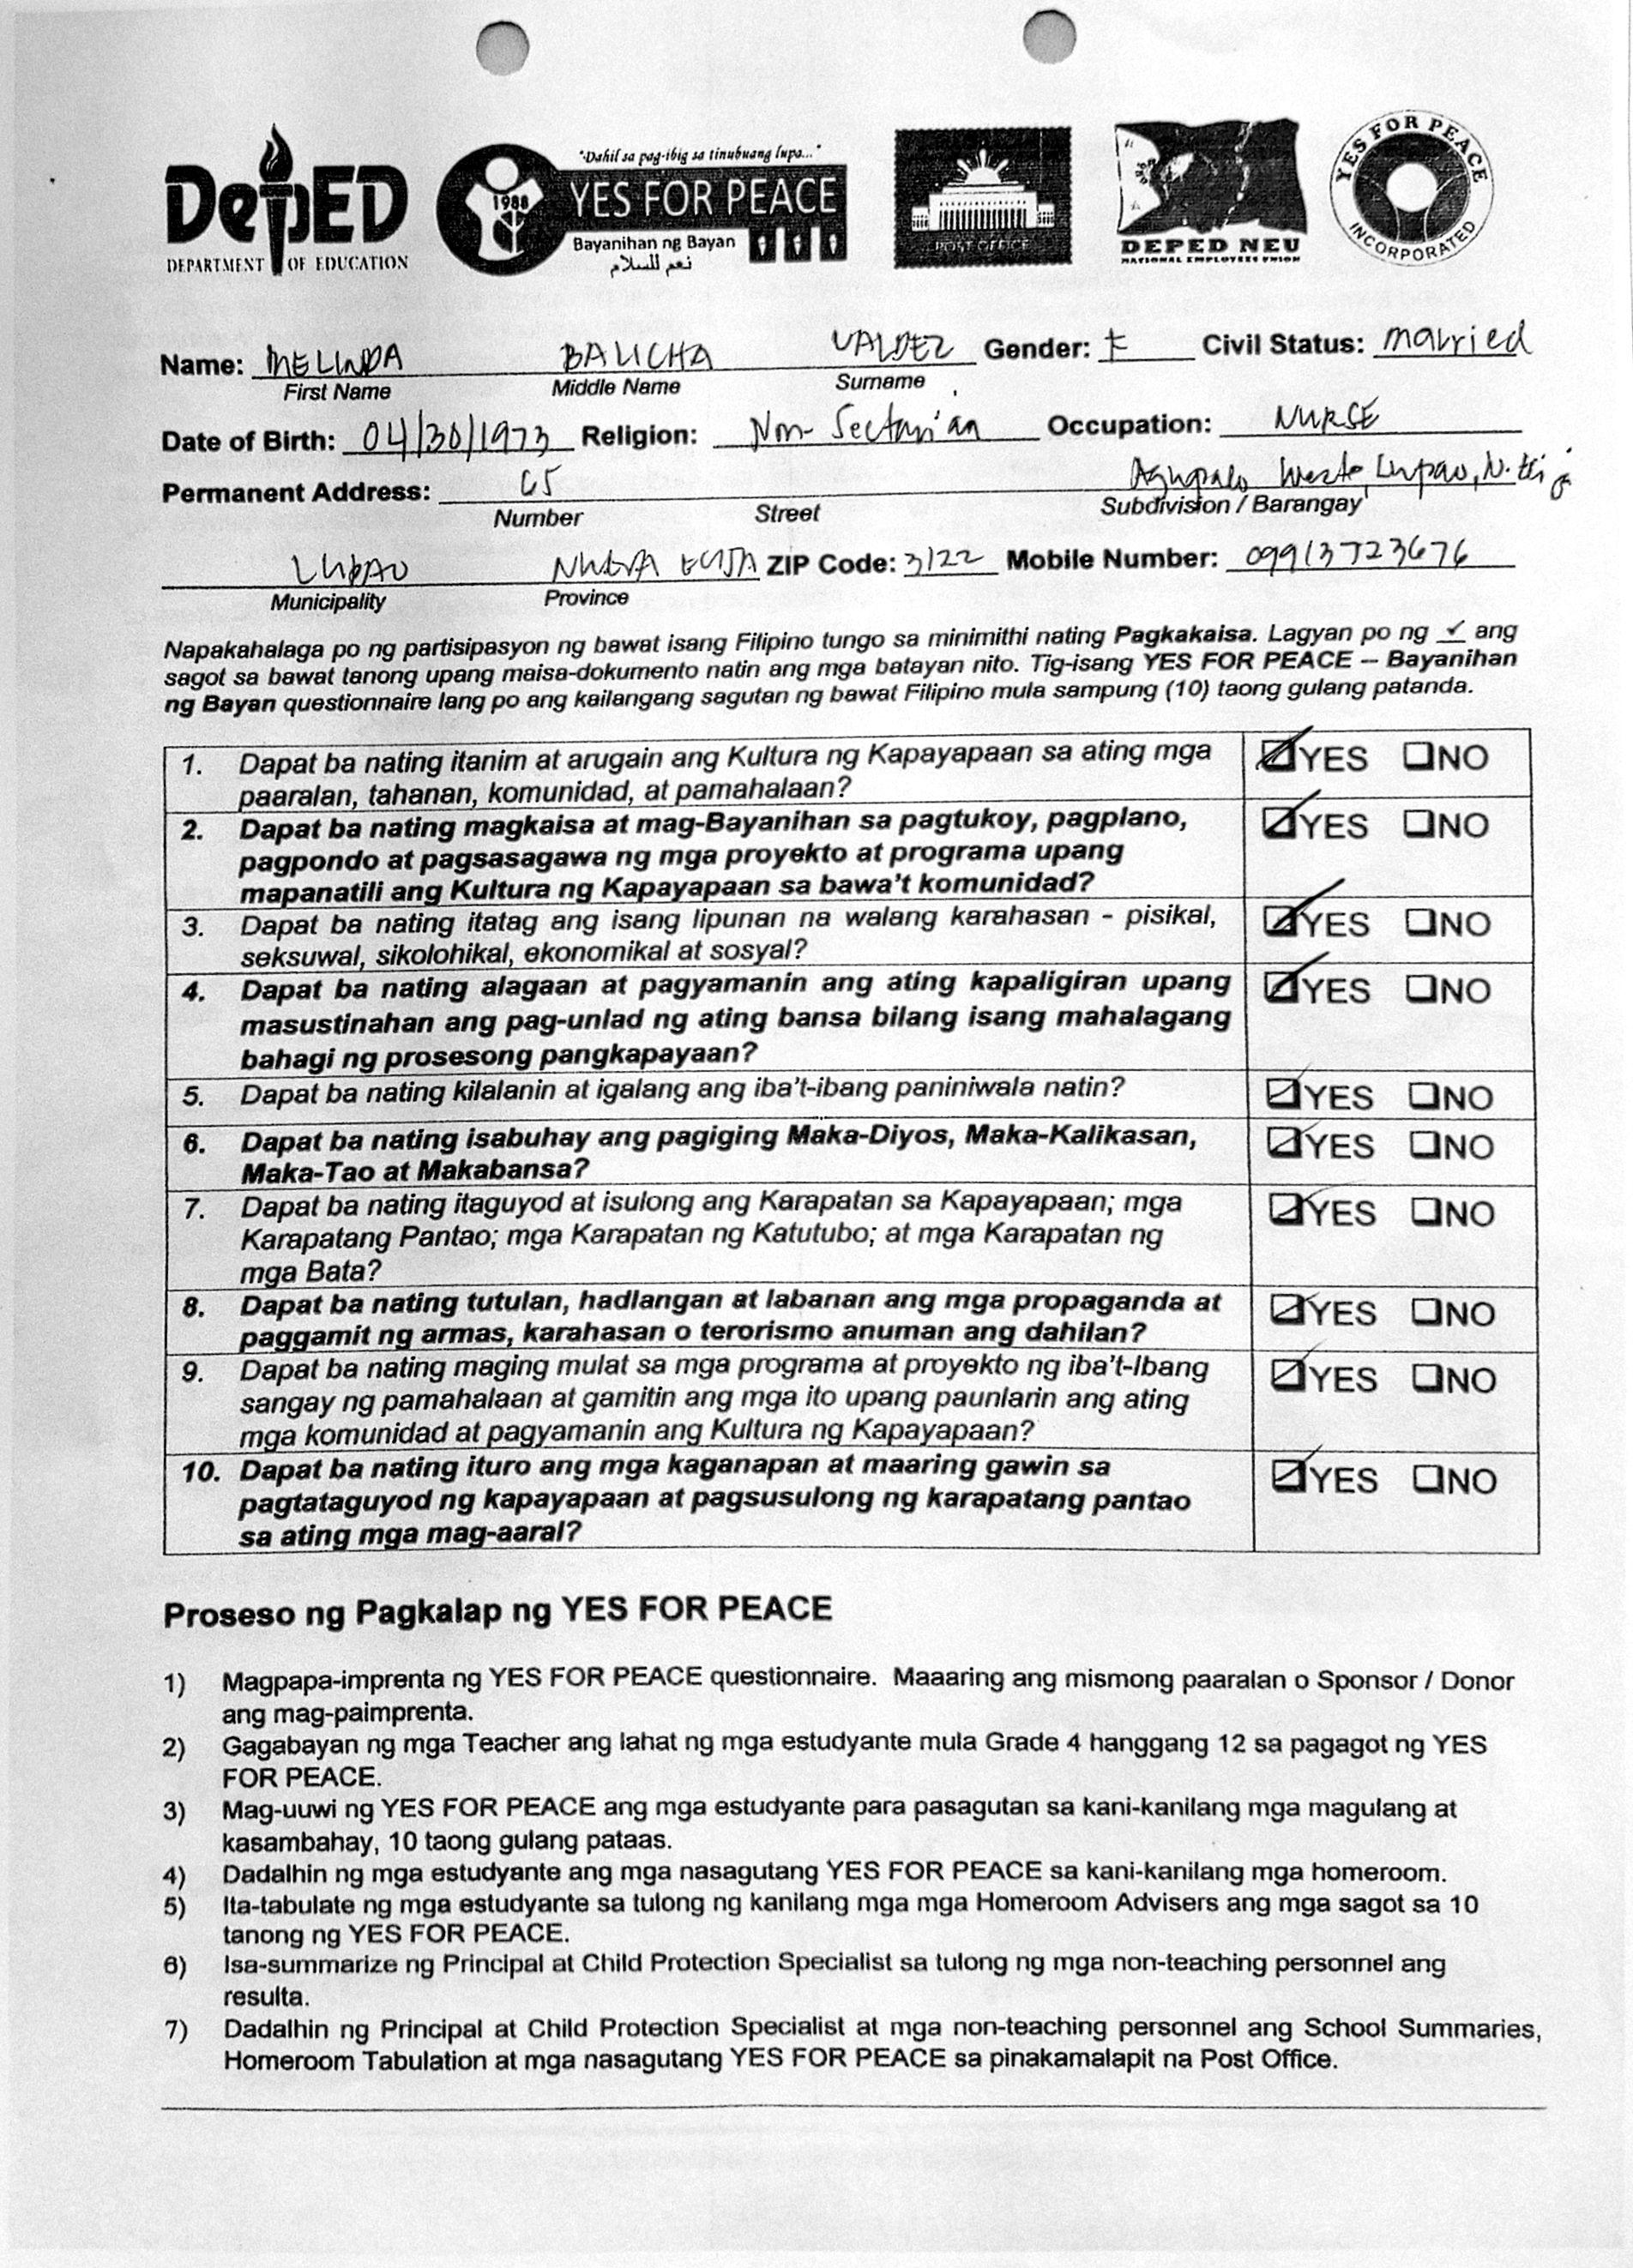 DepED
DEPARTMENT OF EDUCATION
"Dahil sa pag-ibig sa tinubuang lupa..."
1988
YES FOR PEACE
Bayanihan ng Bayan
نعم للسلام
POST OFFICE
DEPED NEU
NATIONAL EMPLOYEES UNION
YES FOR PEACE
INCORPORATED
Name: MELINDA BALICHA VALDEZ Gender: F Civil Status: Married
First Name Middle Name Surname
Date of Birth: 04/30/1973 Religion: Non-Sectarian Occupation: NURSE
Permanent Address: 65 Agupalo Weste, Lupao, N. Ecija
Number Street Subdivision / Barangay
LUPAO NUEVA ECIJA ZIP Code: 3122 Mobile Number: 09913723676
Municipality Province
Napakahalaga po ng partisipasyon ng bawat isang Filipino tungo sa minimithi nating Pagkakaisa. Lagyan po ng ✓ ang
sagot sa bawat tanong upang maisa-dokumento natin ang mga batayan nito. Tig-isang YES FOR PEACE – Bayanihan
ng Bayan questionnaire lang po ang kailangang sagutan ng bawat Filipino mula sampung (10) taong gulang patanda.
1. Dapat ba nating itanim at arugain ang Kultura ng Kapayapaan sa ating mga ☑YES ☐NO
paaralan, tahanan, komunidad, at pamahalaan?
2. Dapat ba nating magkaisa at mag-Bayanihan sa pagtukoy, pagplano, ☑YES ☐NO
pagpondo at pagsasagawa ng mga proyekto at programa upang
mapanatili ang Kultura ng Kapayapaan sa bawa't komunidad?
3. Dapat ba nating itatag ang isang lipunan na walang karahasan - pisikal, ☑YES ☐NO
seksuwal, sikolohikal, ekonomikal at sosyal?
4. Dapat ba nating alagaan at pagyamanin ang ating kapaligiran upang ☑YES ☐NO
masustinahan ang pag-unlad ng ating bansa bilang isang mahalagang
bahagi ng prosesong pangkapayaan?
5. Dapat ba nating kilalanin at igalang ang iba't-ibang paniniwala natin? ☑YES ☐NO
6. Dapat ba nating isabuhay ang pagiging Maka-Diyos, Maka-Kalikasan, ☑YES ☐NO
Maka-Tao at Makabansa?
7. Dapat ba nating itaguyod at isulong ang Karapatan sa Kapayapaan; mga ☑YES ☐NO
Karapatang Pantao; mga Karapatan ng Katutubo; at mga Karapatan ng
mga Bata?
8. Dapat ba nating tutulan, hadlangan at labanan ang mga propaganda at ☑YES ☐NO
paggamit ng armas, karahasan o terorismo anuman ang dahilan?
9. Dapat ba nating maging mulat sa mga programa at proyekto ng iba't-Ibang ☑YES ☐NO
sangay ng pamahalaan at gamitin ang mga ito upang paunlarin ang ating
mga komunidad at pagyamanin ang Kultura ng Kapayapaan?
10. Dapat ba nating ituro ang mga kaganapan at maaring gawin sa ☑YES ☐NO
pagtataguyod ng kapayapaan at pagsusulong ng karapatang pantao
sa ating mga mag-aaral?
Proseso ng Pagkalap ng YES FOR PEACE
1) Magpapa-imprenta ng YES FOR PEACE questionnaire. Maaaring ang mismong paaralan o Sponsor / Donor
ang mag-paimprenta.
2) Gagabayan ng mga Teacher ang lahat ng mga estudyante mula Grade 4 hanggang 12 sa pagagot ng YES
FOR PEACE.
3) Mag-uuwi ng YES FOR PEACE ang mga estudyante para pasagutan sa kani-kanilang mga magulang at
kasambahay, 10 taong gulang pataas.
4) Dadalhin ng mga estudyante ang mga nasagutang YES FOR PEACE sa kani-kanilang mga homeroom.
5) Ita-tabulate ng mga estudyante sa tulong ng kanilang mga mga Homeroom Advisers ang mga sagot sa 10
tanong ng YES FOR PEACE.
6) Isa-summarize ng Principal at Child Protection Specialist sa tulong ng mga non-teaching personnel ang
resulta.
7) Dadalhin ng Principal at Child Protection Specialist at mga non-teaching personnel ang School Summaries,
Homeroom Tabulation at mga nasagutang YES FOR PEACE sa pinakamalapit na Post Office.